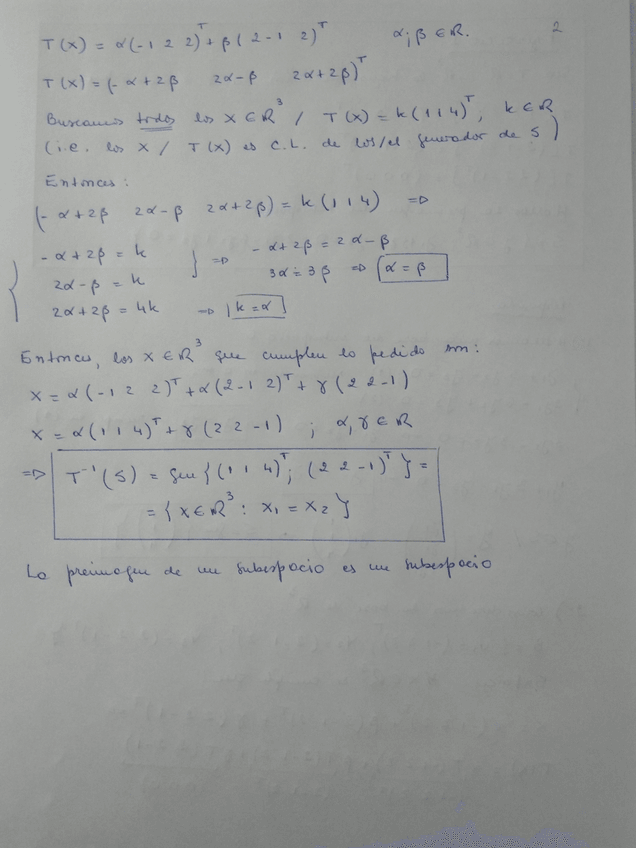 T(x) = α(-1 2 2)ᵀ + β(2 -1 2)ᵀ α, β ∈ ℝ. 2
T(x) = (-α+2β 2α-β 2α+2β)ᵀ
Buscamos todos los x ∈ ℝ³ / T(x) = k(1 1 4)ᵀ, k ∈ ℝ
(i.e. los x / T(x) es C.L. de los/el generador de S)
Entonces:
(-α+2β 2α-β 2α+2β) = k(1 1 4) ⇒
{ -α+2β = k } ⇒ -α+2β = 2α-β
2α-β = k 3α = 3β ⇒ α = β
2α+2β = 4k ⇒ k = α
Entonces, los x ∈ ℝ³ que cumplen lo pedido son:
x = α(-1 2 2)ᵀ + α(2 -1 2)ᵀ + γ(2 2 -1)
x = α(1 1 4)ᵀ + γ(2 2 -1) ; α, γ ∈ ℝ
⇒ T⁻¹(S) = gen{(1 1 4)ᵀ; (2 2 -1)ᵀ} =
= {x ∈ ℝ³ : x₁ = x₂}
La preimagen de un subespacio es un subespacio